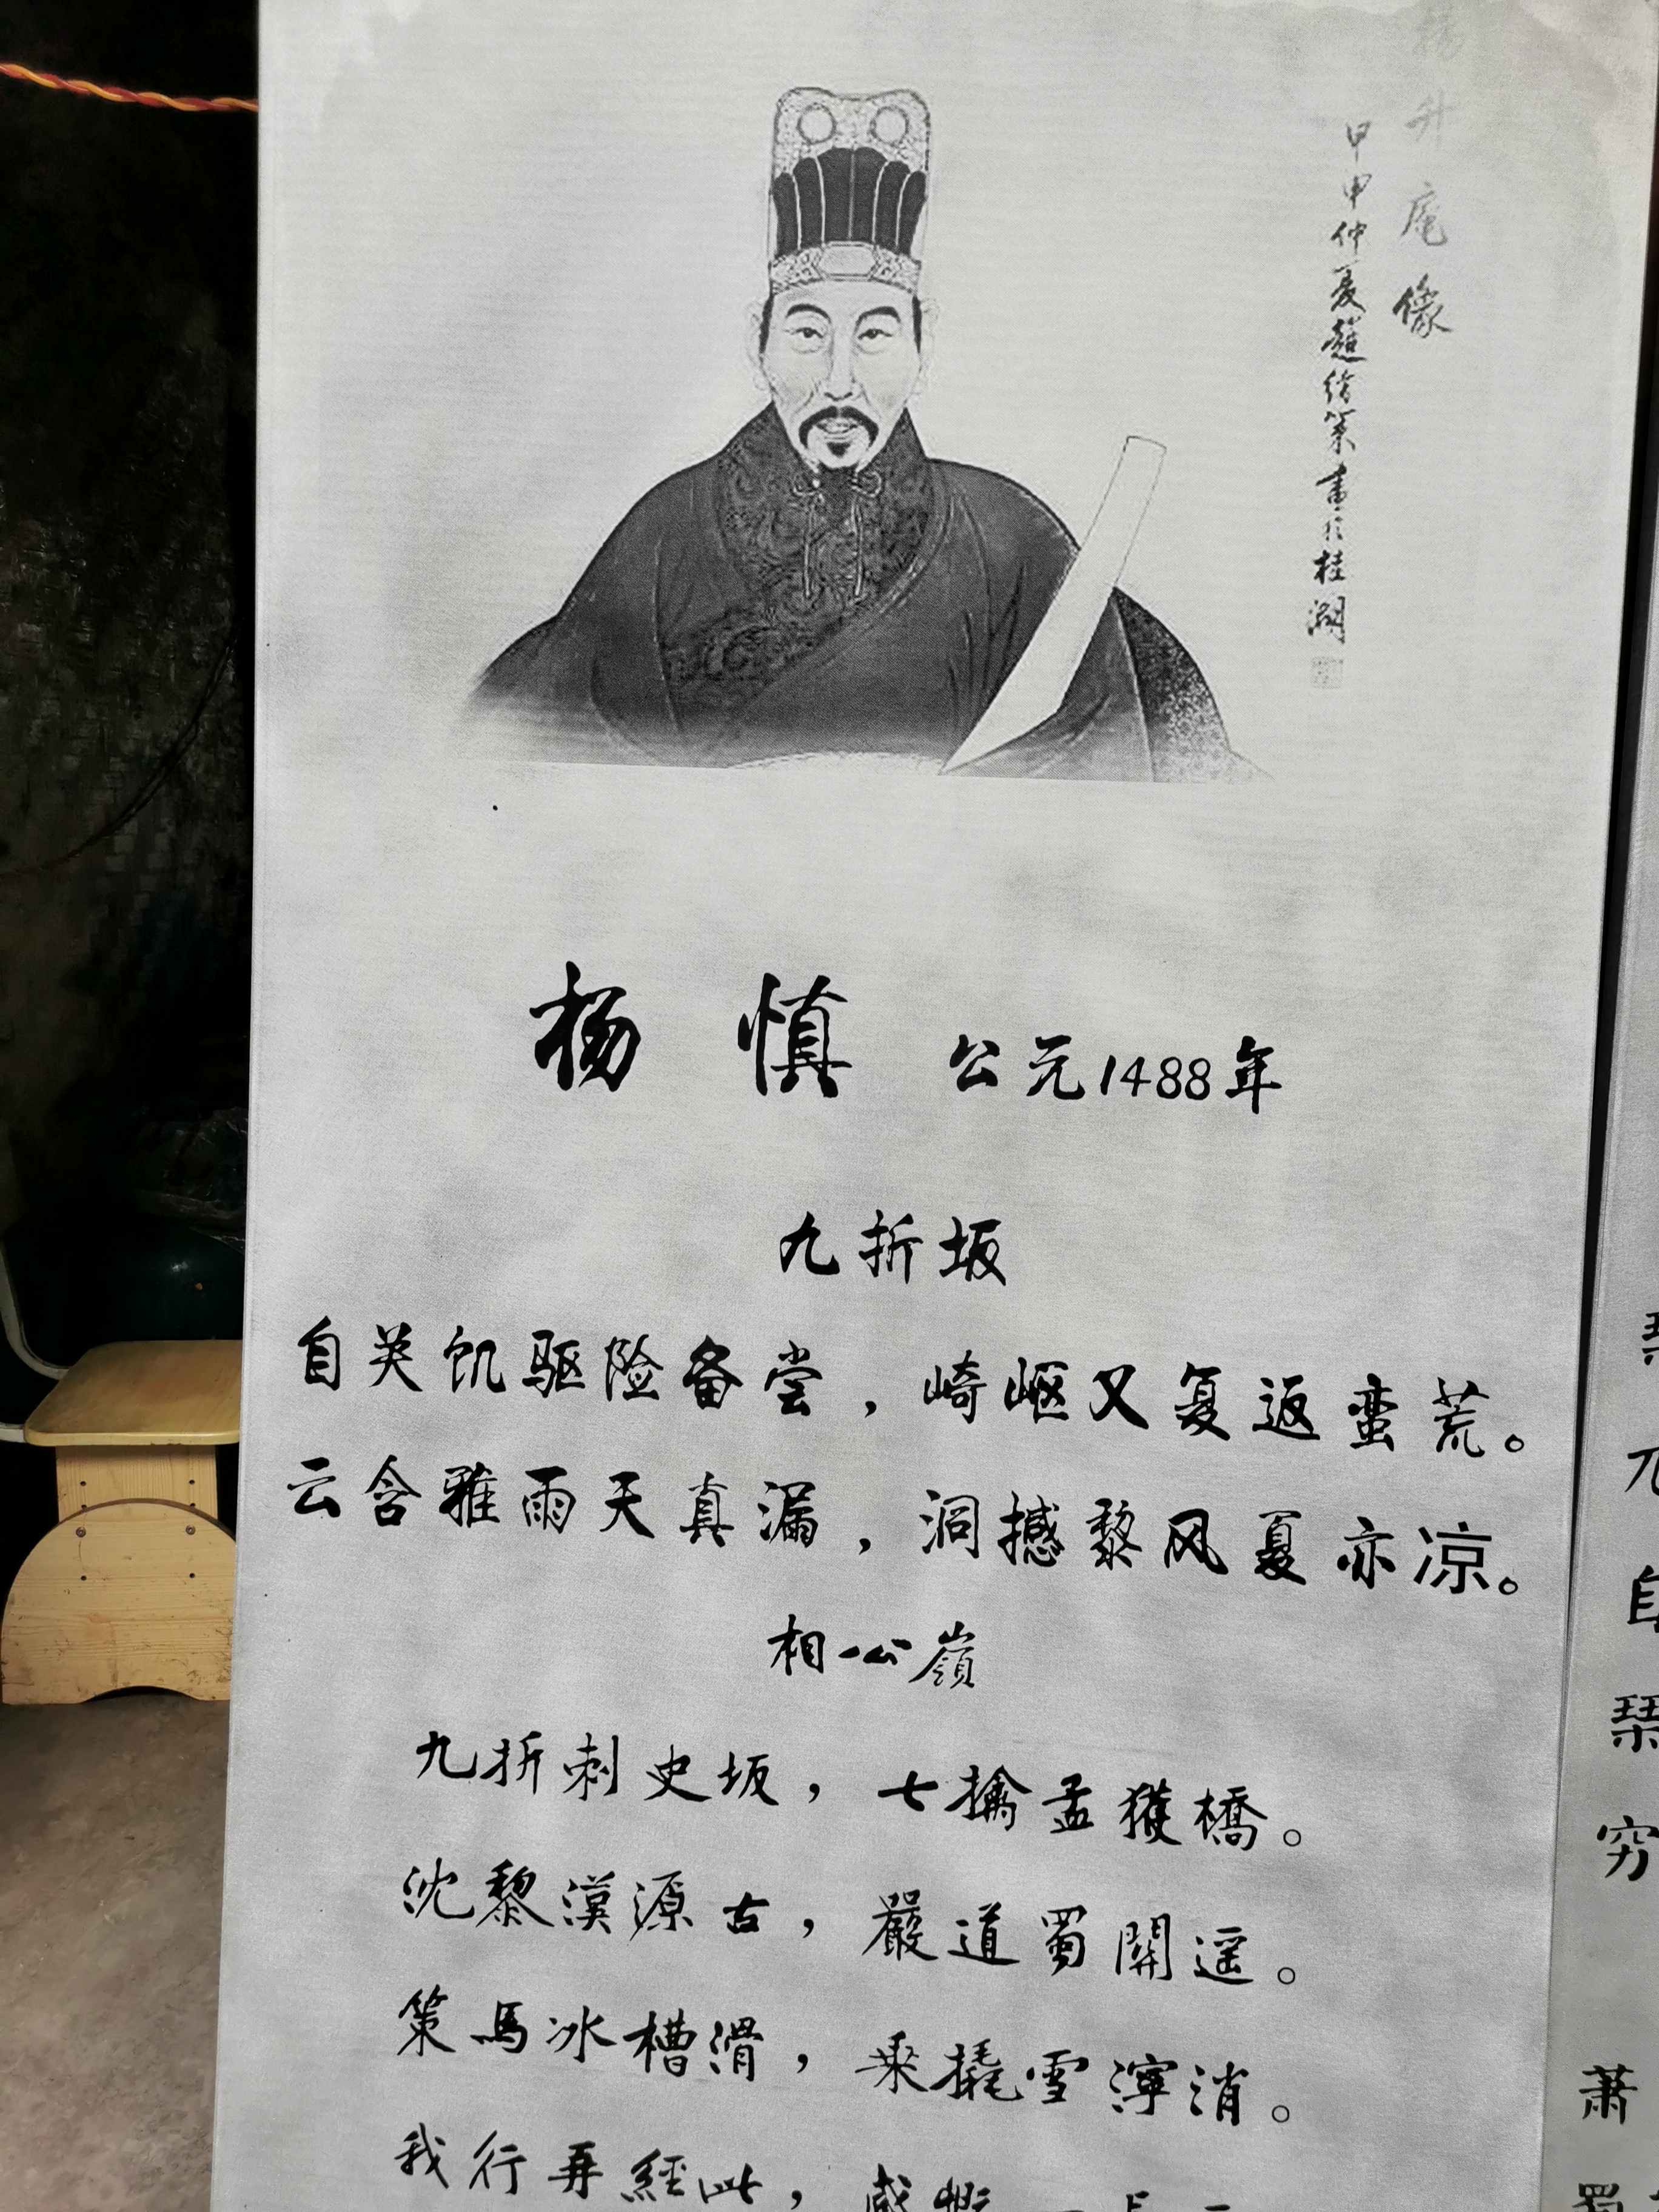 杨升庵像
甲申仲夏赵绪策画于桂湖
杨 慎 公元1488年
九折坂
自关饥驱险备尝，崎岖又复返蛮荒。
云含雅雨天真漏，洞撼黎风夏亦凉。
相公嶺
九折刺史坂，七擒孟獲橋。
沈黎漢源古，嚴道蜀開遥。
策馬冰槽滑，乘撬雪濘消。
我行再經此，感慨一
琴
兀
自
琴
穷
萧
蜀